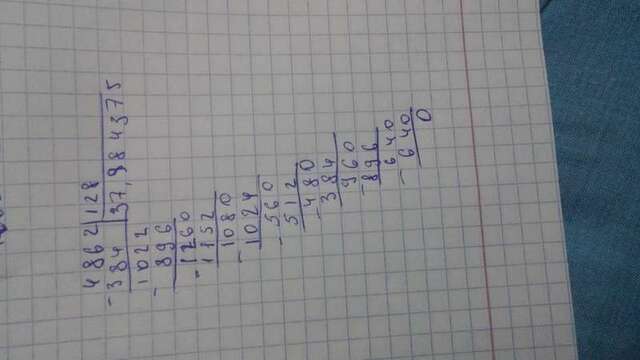 4862 128
- 384 37,984375
1022
- 896
1260
- 1152
1080
- 1024
560
- 512
480
- 384
960
- 896
640
- 640
0